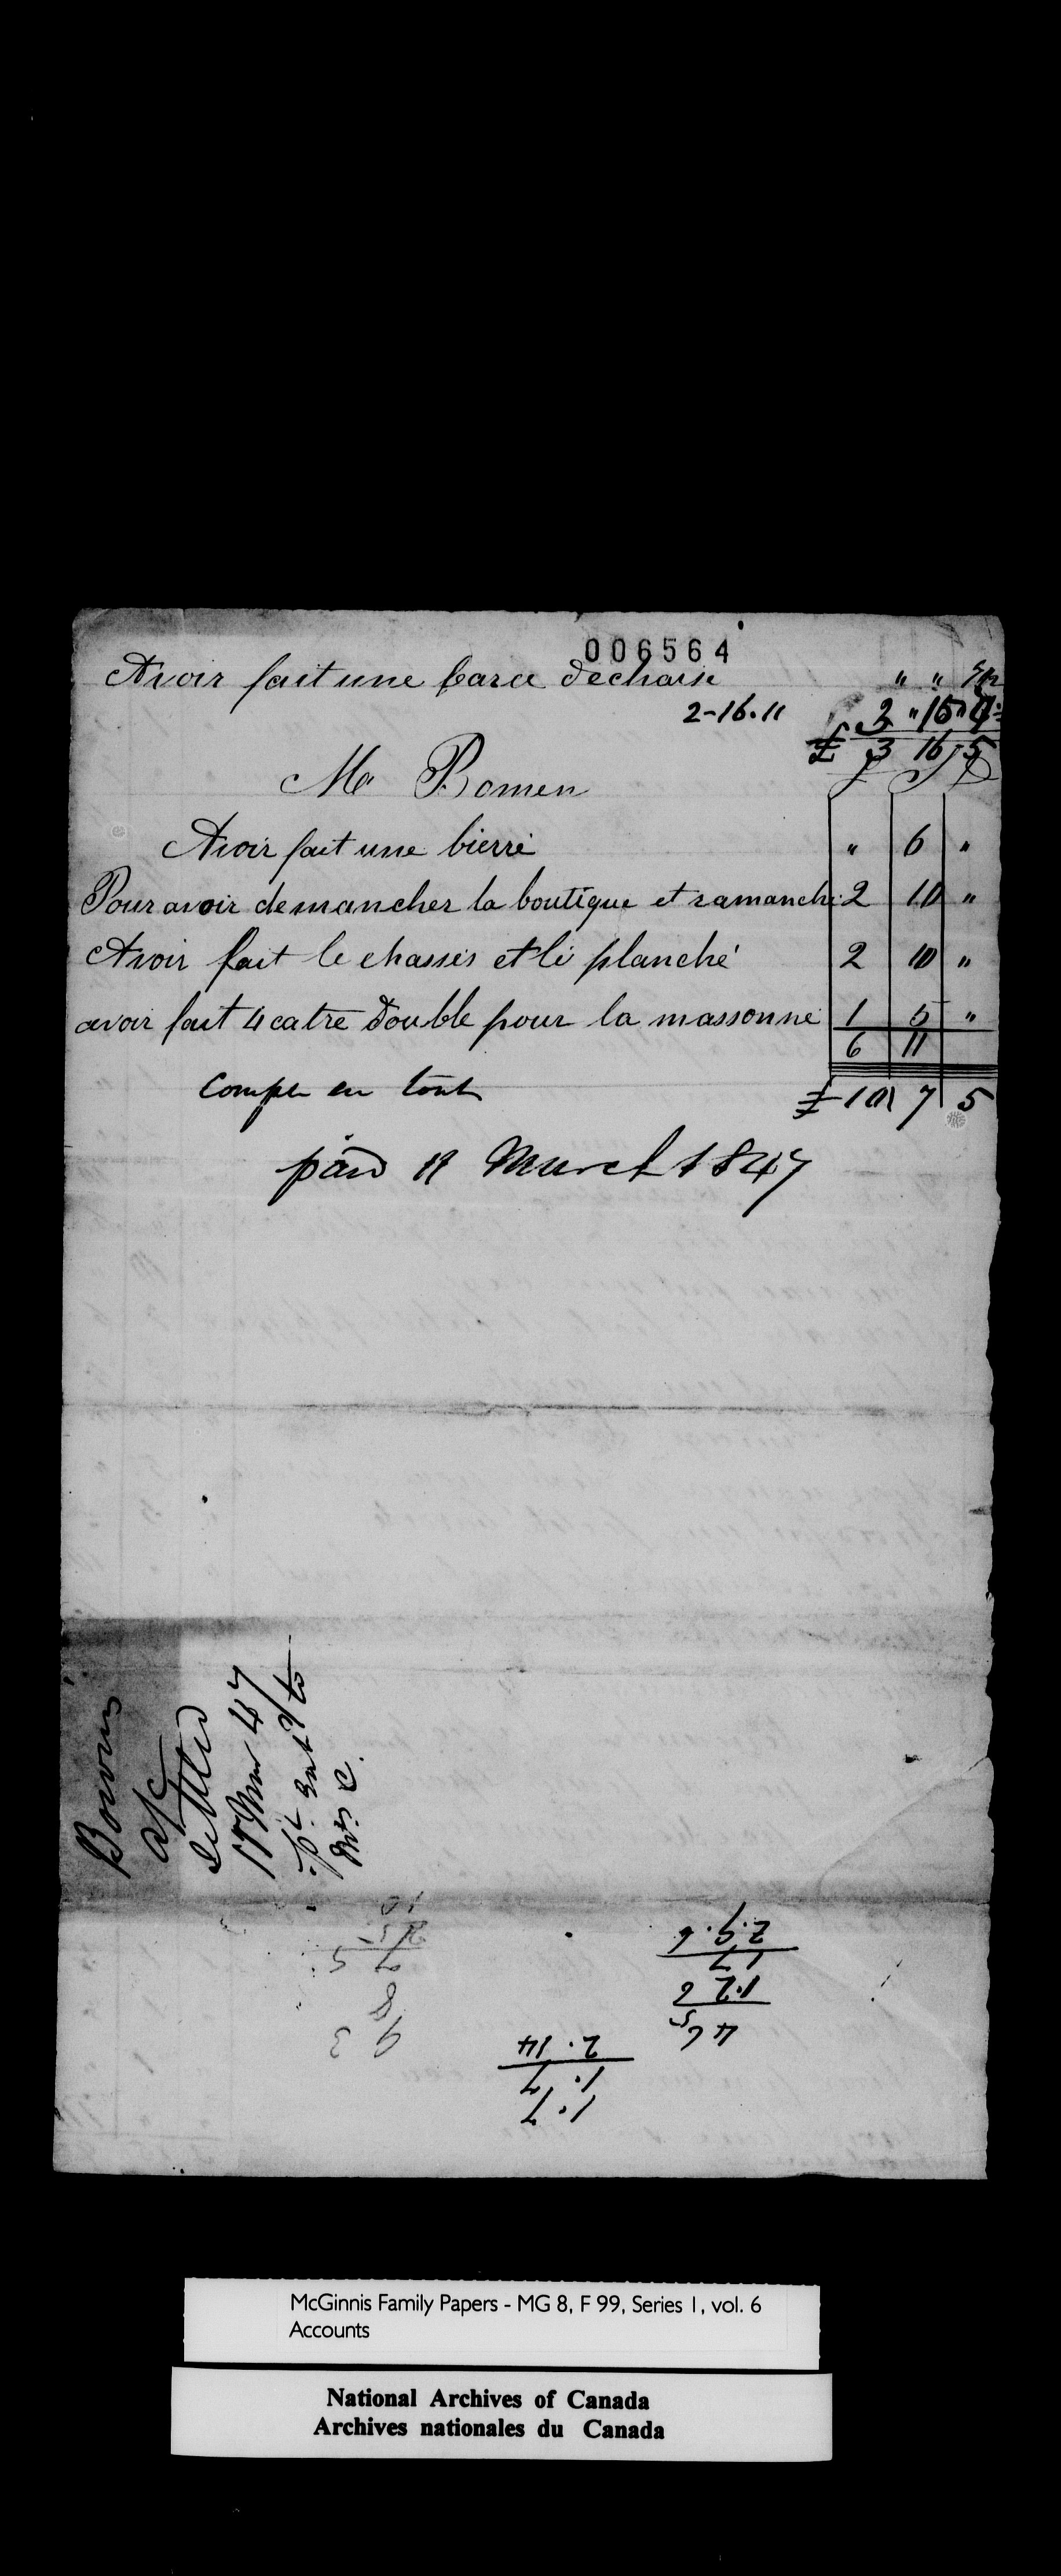 006564
Avoir fait une barce de chaise " "
2-16.11 3 " 15 "
£ 3 16 5
Mr Bomen
Avoir fait une bierre " 6 "
Pour avoir demancher la boutique et ramanche 2 10 "
Avoir fait le chassis et le planché 2 10 "
avoir fait 4 catre double pour la massonne 1 5 "
6 11
Compte en tout £ 10 7 5
paid 19 March 1847
Bowin
a/c
settled
19 Mar 47
Mr C.
10
2 15
7 5
8
9 3
2.9.6
17
1.2 6
4 6 5
2.14
1.7
1.7
McGinnis Family Papers - MG 8, F 99, Series 1, vol. 6
Accounts
National Archives of Canada
Archives nationales du Canada